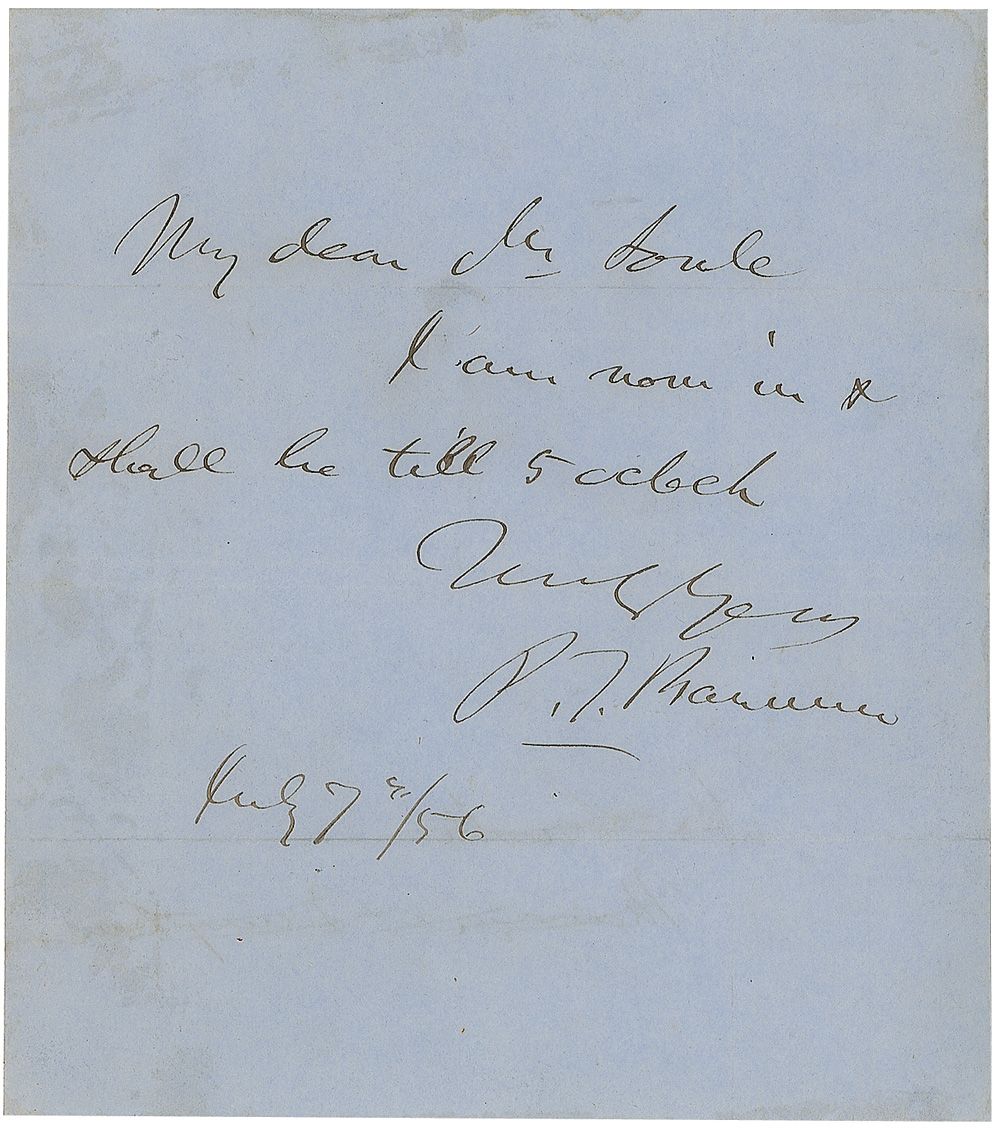 My dear Mr Soule
I am now in &
shall be till 5 oclock
Truly Yours
P. T. Barnum
July 7th/56